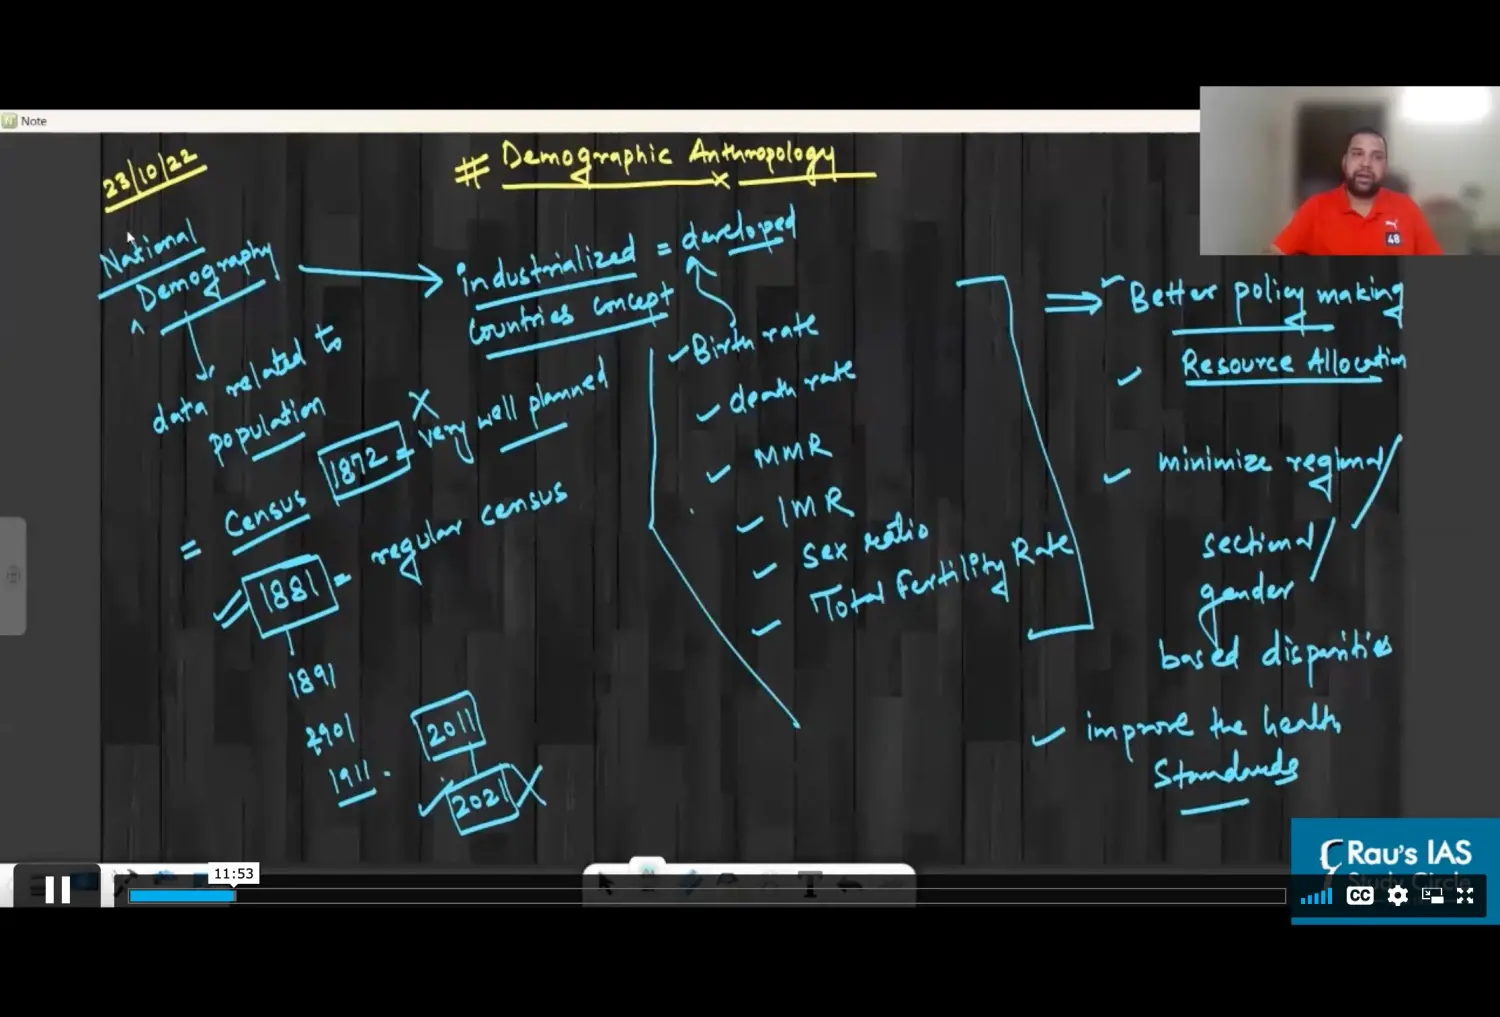 Note
23/10/22
# Demographic Anthropology
National
Demography
data related to
population
industrialized = developed
countries concept
1872 = very well planned
= Census
1881 = regular census
1891
1901
1911
2011
2021
Birth rate
death rate
MMR
IMR
Sex ratio
Total Fertility Rate
⇒ Better policy making
Resource Allocation
minimize regional/
sectional/
gender
based disparities
improve the health
standards
48
Rau's IAS
Study Circle
11:53
CC